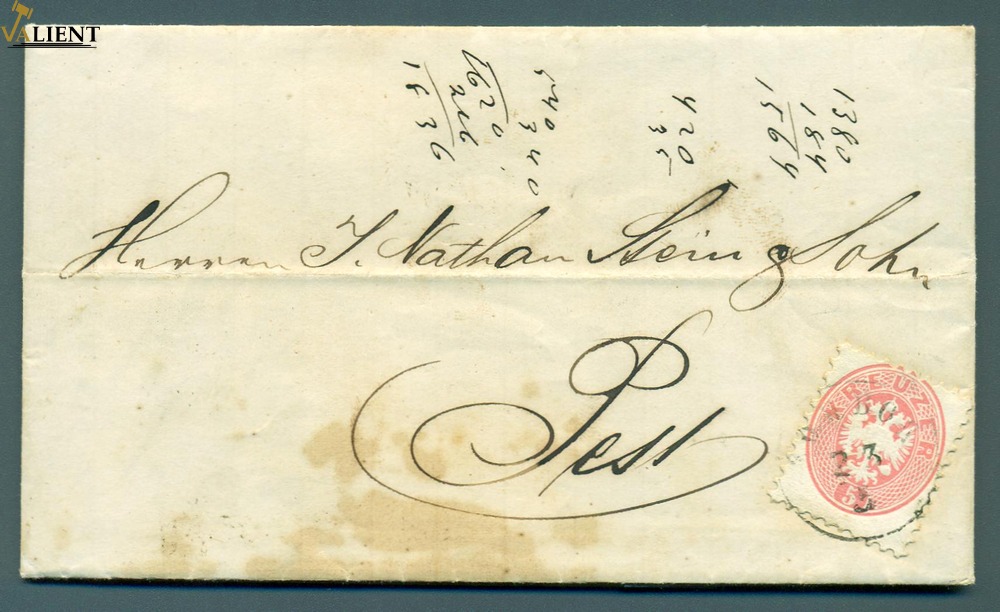 VALIENT
1380
184
1564
420
35
540
340
1620
216
1836
Herren J. Nathan Stein & Sohn
Pest
KREUZER
5